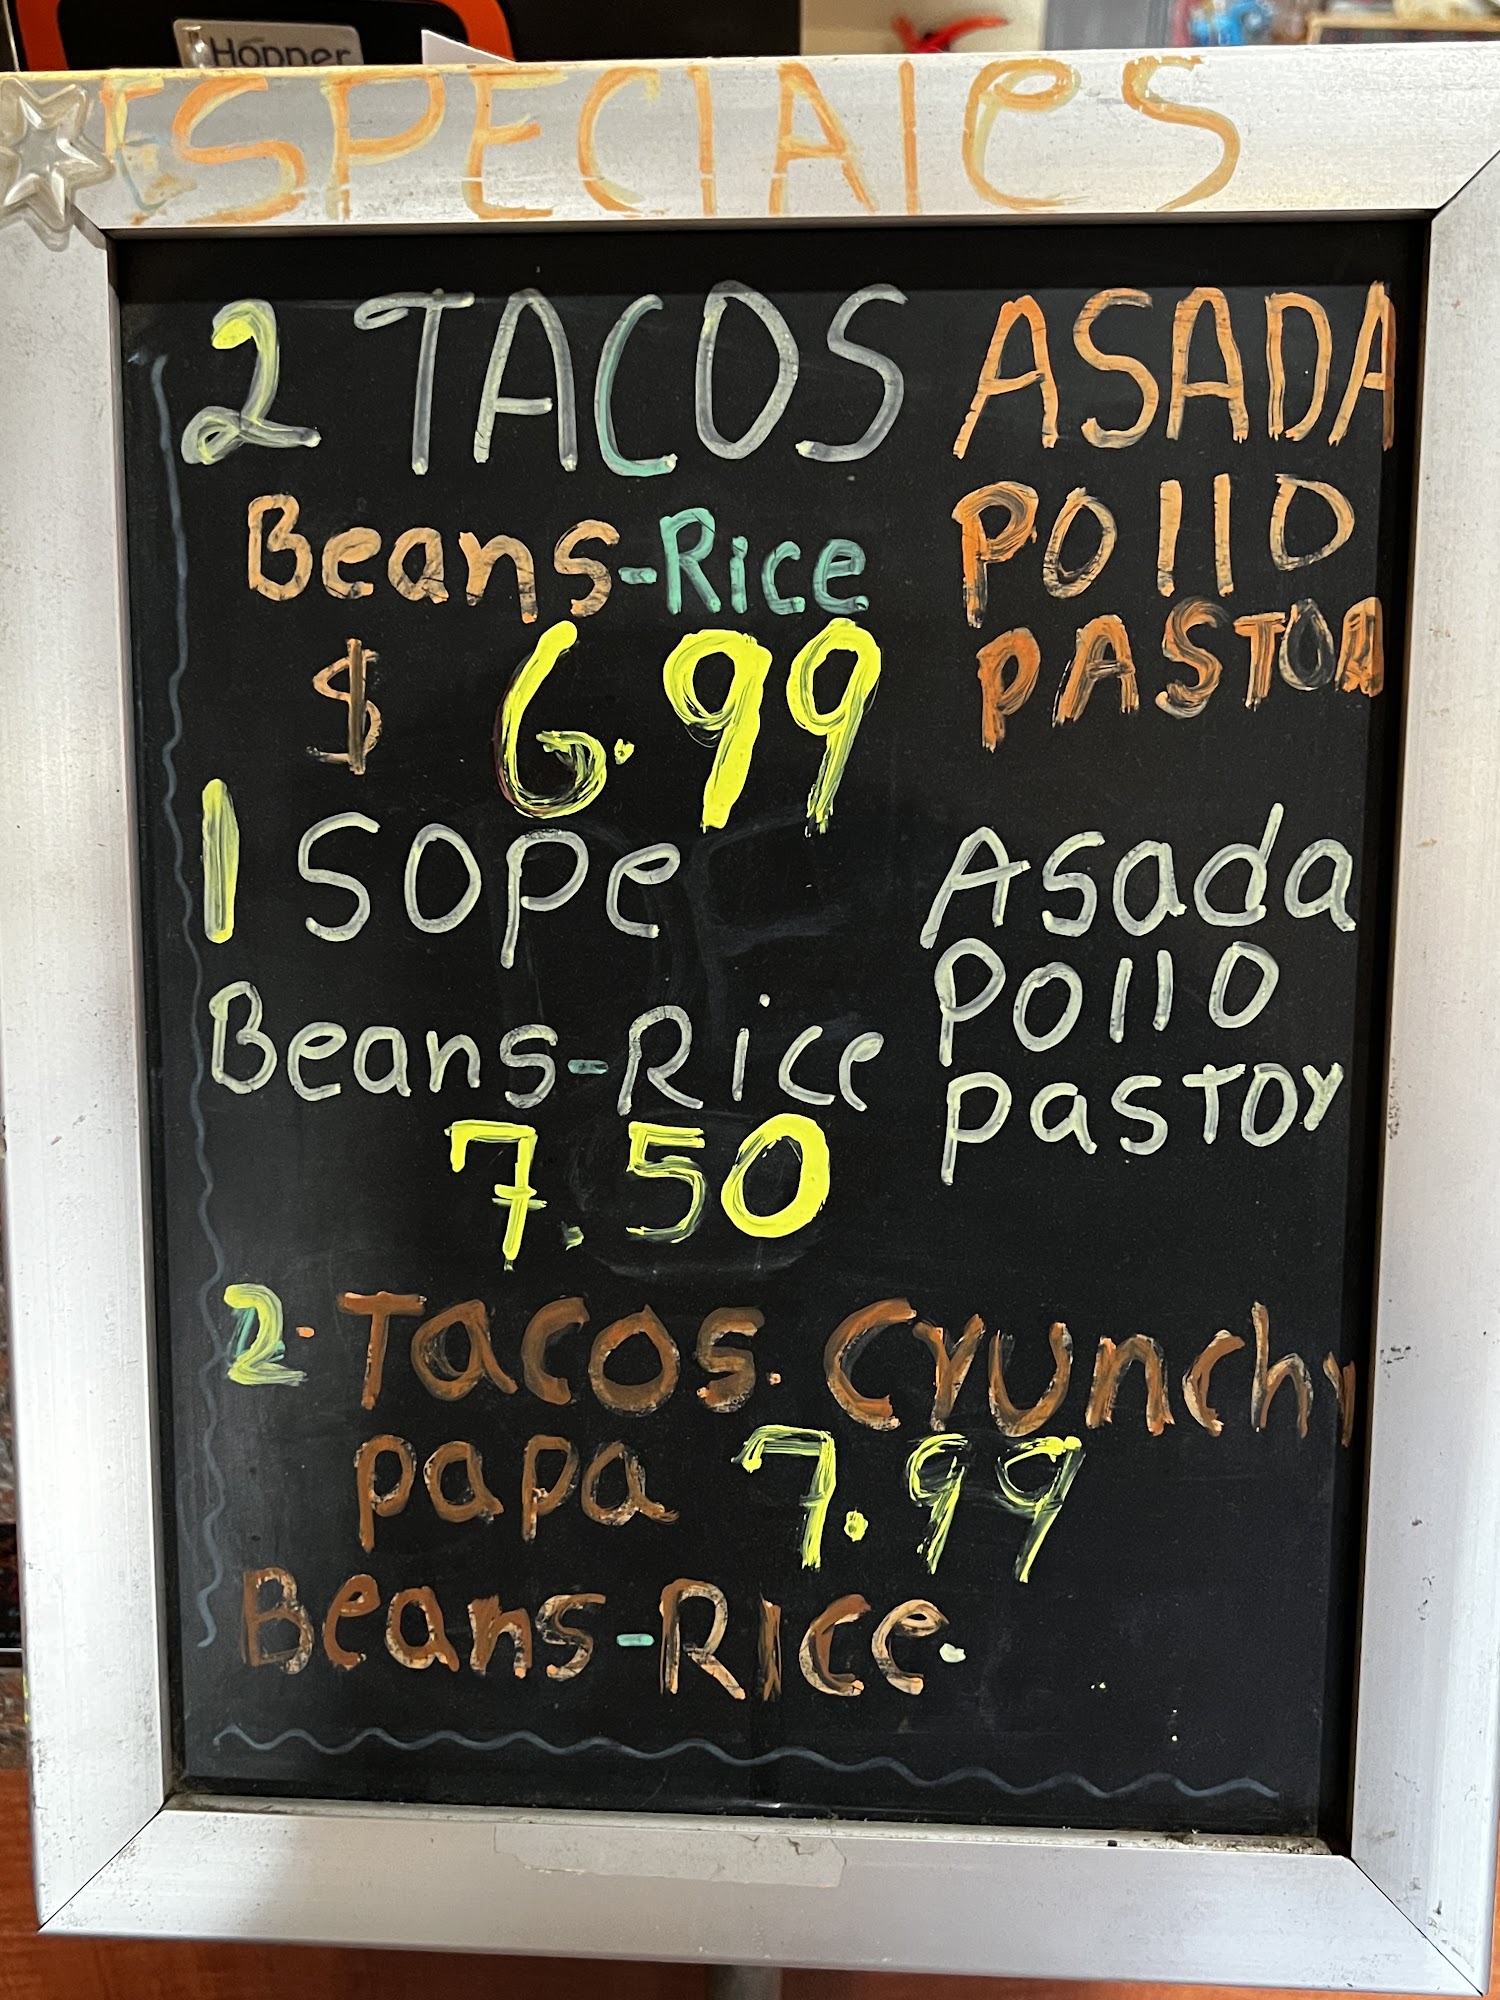 Hopper
ESPECIAles
2 TACOS ASADA
Beans-Rice POllO
PASTOR
$ 6.99
1 SOPe Asada
POllO
Beans-Rice
pasTOr
7.50
2. Tacos. Crunchy
papa 7.99
Beans-Rice.